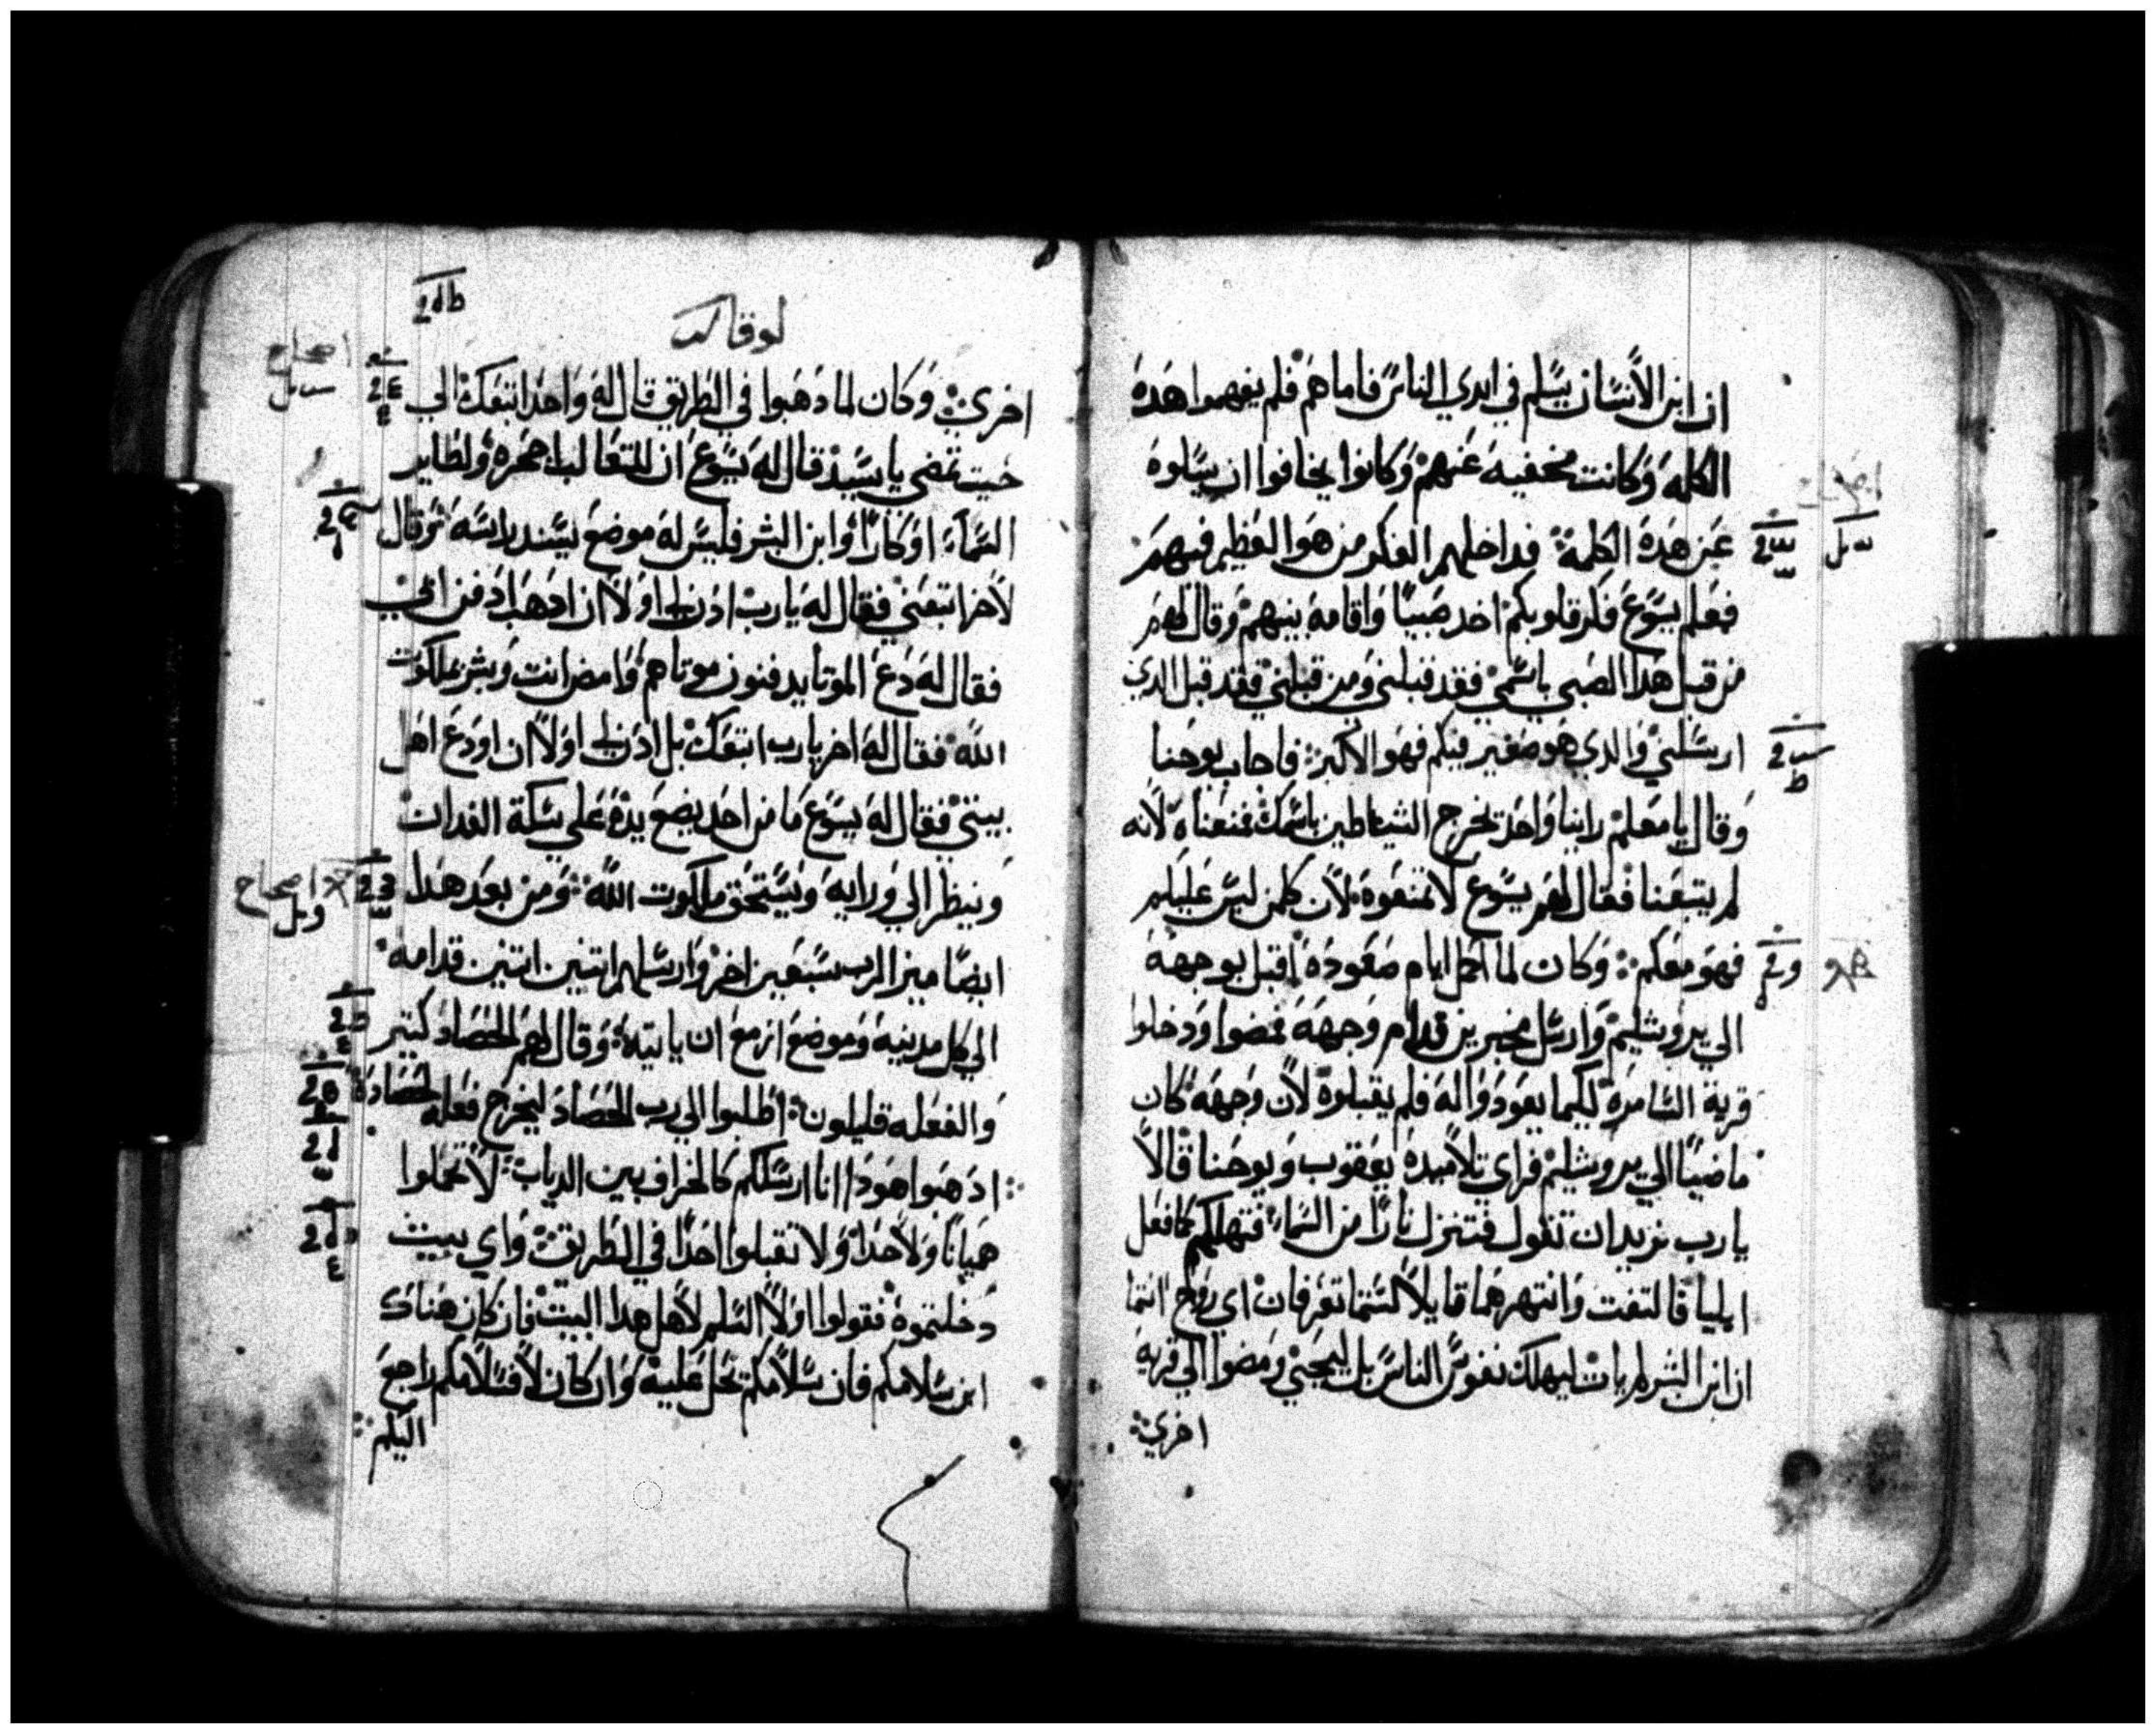 ان ابن الأنسان يسلم في ايدي الناس فاما هم فلم يفهموا هده
الكلمه وكانت مخفيه عنهم وكانوا يخافوا ان يسلوه
عن هده الكلمة فداخلهم الفكر من هوا العظيم فيهم
فعلم يسوع فكر قلوبكم اخد صبيًا واقامه بينهم وقال لهم
من قبل هدا الصبي باسمي فقد قبلني ومن قبلني فقد قبل الدي
ارسلني والدي هو صغير فيكم فهو الأكبر فاجاب يوحنا
وقال يا معلم راينا واحد يخرج الشياطين باسمك فمنعناه لأنه
لم يتبعنا فقال لهم يسوع لا تمنعوه لأن كلمن ليس عليكم
فهو معكم وكان لما اكمل ايام صعوده اقبل بوجهه
الي يروشليم وارسل مخبرين قدام وجهه فمضوا ودخلوا
قرية السامرة لكيما يعودوا له فلم يقبلوه لأن وجهه كان
ماضيًا الي يروشليم فراي تلاميده يعقوب ويوحنا قالا
يا رب نريد ان تقول فتنزل نارًا من السماء فتهلكهم كما فعل
ايليا فالتفت وانتهرهما قايلاً لستما تعرفان اي روح انتما
ان ابن البشر لم يات ليهلك نفوس الناس بل ليحيي ومضوا الي قرية
اخري
لوقا
اصحاح
اخري وكان لما دهبوا في الطريق قال له واحد اتبعك الي
حيت تمضي يا سيد قال له يسوع ان للتعالب اجحره ولطاير
السماء اوكارًا وابن البشر فليس له موضع يسند راسه وقال
لأخر اتبعني فقال له يا رب ادن لي اولاً ان ادهب ادفن ابي
فقال له دع الموتا يدفنون موتاهم وامض انت وبشر بملكوت
الله فقال له اخر يا رب اتبعك بل ادن لي اولاً ان اودع اهل
بيتي فقال له يسوع ما من احد يضع يده على سكة الفدان
وينظر الي ورايه ويستحق ملكوت الله ومن بعد هدا
اصحاح
ايضًا ميز الرب سبعين اخر وارسلهم اتنين اتنين قدامه
الي كل مدينه وموضع ازمع ان ياتيه وقال لهم الحصاد كتير
والفعله قليلون اطلبوا الي رب الحصاد ليخرج فعله لحصاده
ادهبوا هودا انا ارسلكم كالخراف بين الدياب لا تحملوا
هميانًا ولا حدا ولا تقبلوا احدًا في الطريق واي بيت
دخلتموه فقولوا اولاً السلم لأهل هدا البيت فان كان هناك
ابن سلامكم فان سلامكم تحل عليه وان كان لا فسلامكم راجع
اليكم